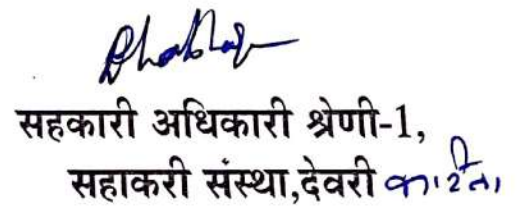 सहकारी अधिकारी श्रेणी-1,
सहाकरी संस्था,देवरी